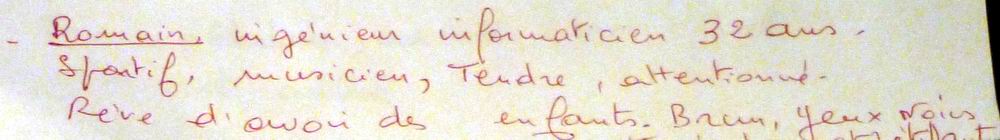 - Romain, ingénieur informaticien 32 ans.
Sportif, musicien, Tendre, attentionné.
Rêve d'avoir des enfants. Brun, yeux noirs